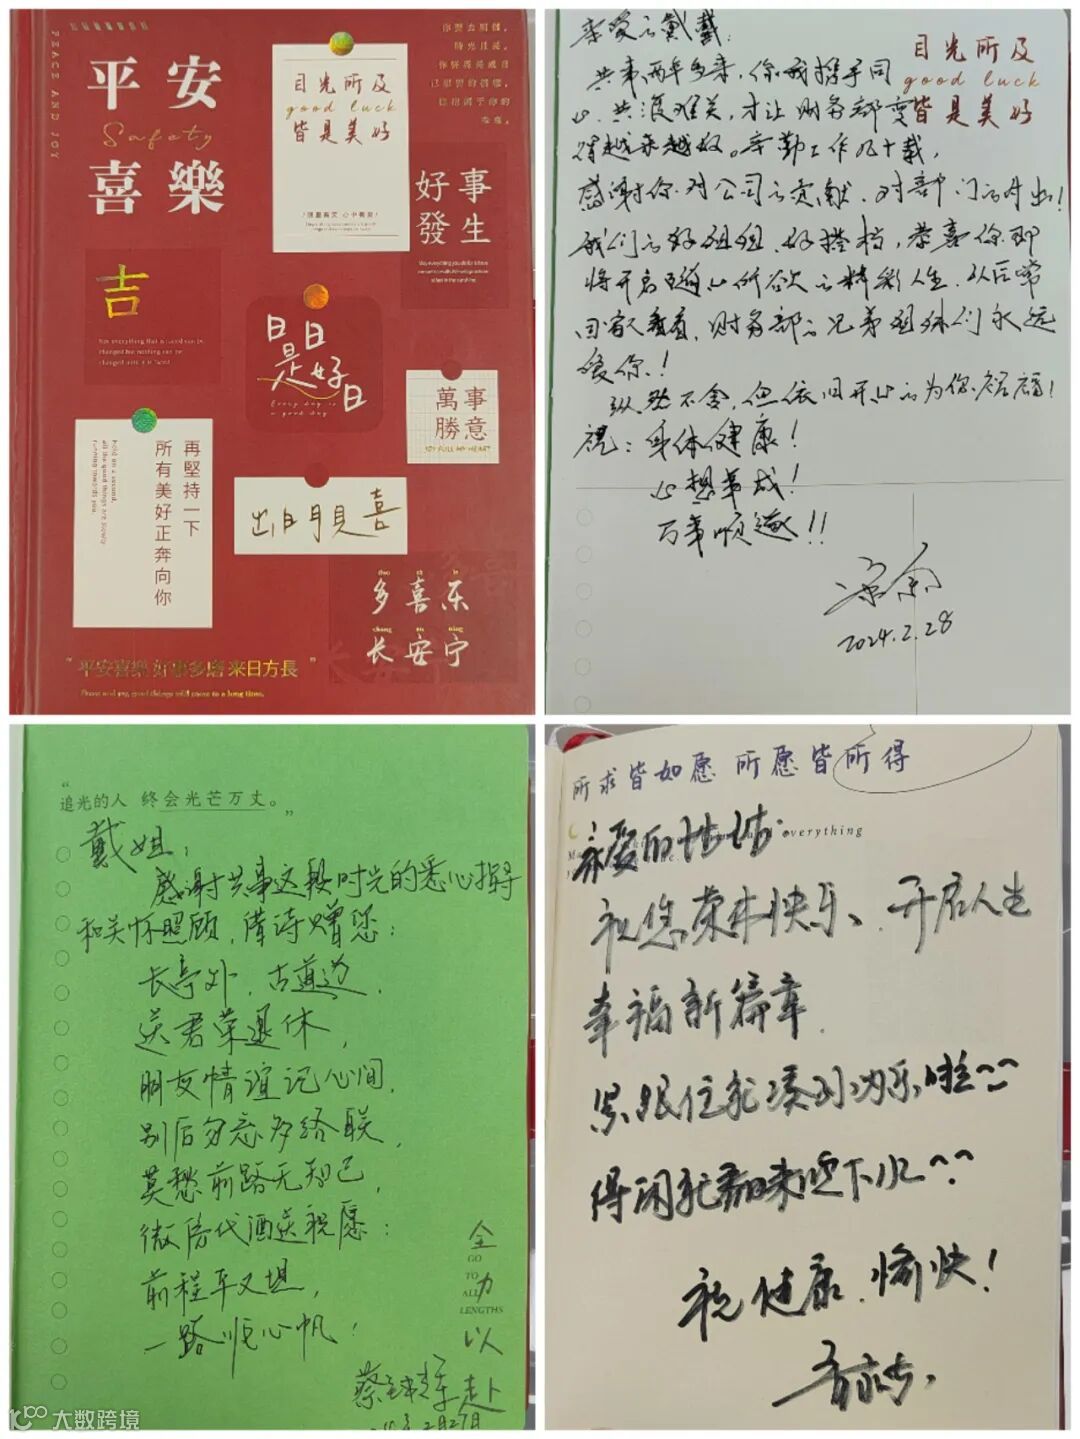 PEACE AND JOY
平安
Safety
喜樂
目光所及
good luck
皆是美好
好事
發生
吉
日日
是好
日
Every day is
a good day
萬事
勝意
JOY FULL MY HEART
再堅持一下
所有美好正奔向你
hold on a second,
all the good things are slowly
running towards you.
出門見喜
多喜乐
长安宁
"平安喜樂 好事多磨 来日方長"
Peace and joy, good things will come to a long time.
亲爱的戴戴:
目光所及
good luck
皆是美好
共事两年多来,你我携手同
心、共渡难关,才让财务部变
得越来越好。辛勤工作几十载,
感谢你对公司的贡献,对部门的付出!
我们的好姐姐、好搭档,恭喜你即
将开启随心所欲的精彩人生,以后常
回家看看,财务部的兄弟姐妹们永远
爱你!
纵然不舍,但依旧开心的为你祝福!
祝:身体健康!
心想事成!
万事顺遂!!
2024.2.28
"追光的人 终会光芒万丈。"
戴姐:
感谢共事这段时光的悉心指导
和关怀照顾,借诗赠您:
长亭外,古道边,
送君荣退休,
朋友情谊记心间,
别后勿忘多给联,
莫愁前路无知己,
微信代酒送祝愿:
前程平又坦,
一路顺心帆!
全
GO
TO
ALL
力
LENGTHS
以
2月27日
所求皆如愿 所愿皆所得
everything
亲爱的姐姐
祝您荣休快乐、开启人生
幸福新篇章.
祝健康、愉快!
大数跨境